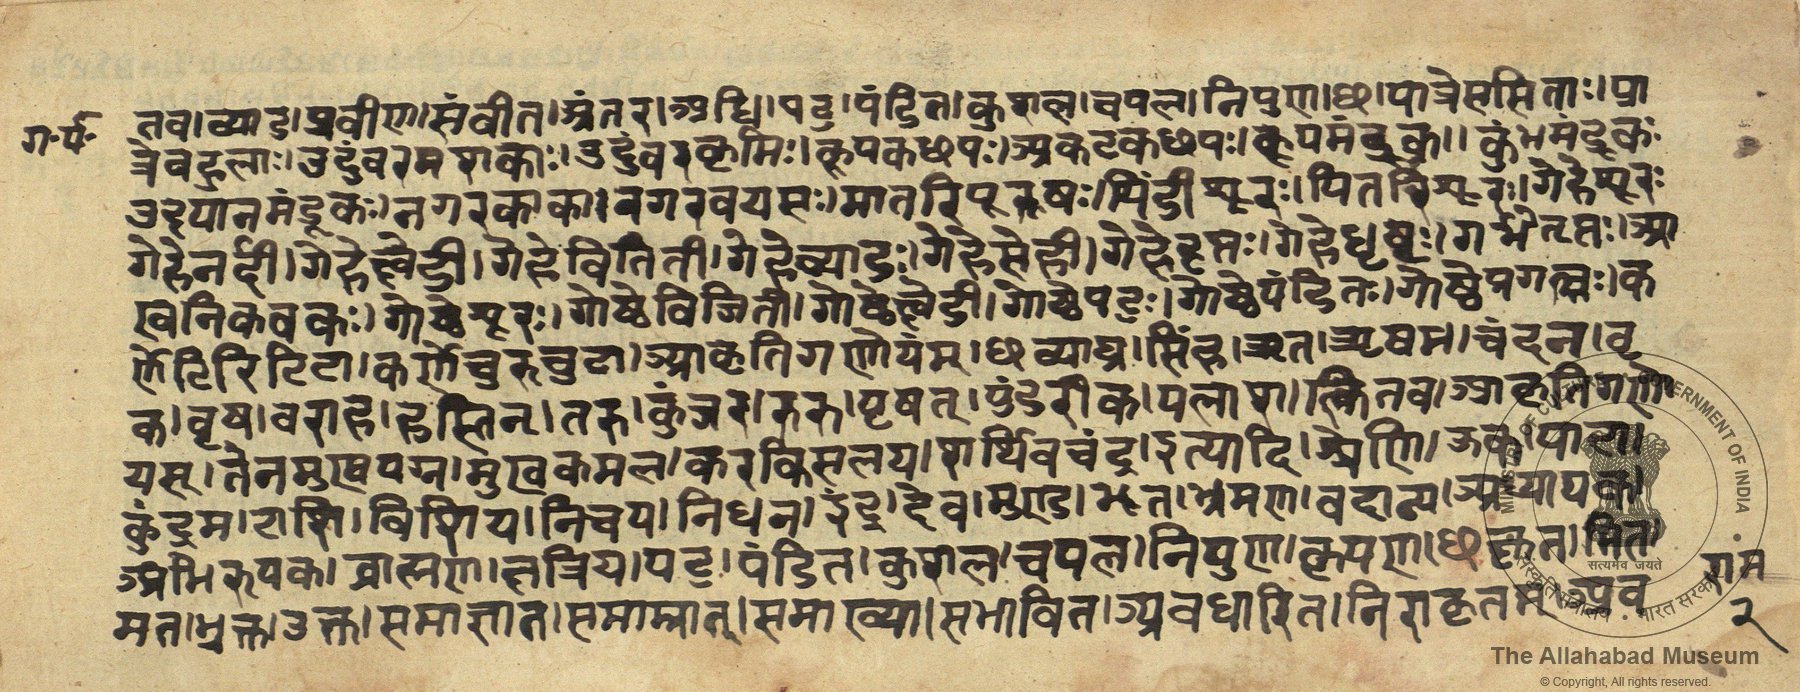 ग॰पं॰
तव।व्याड।प्रवीण।संवीत।अंतर।अधि।पटु।पंडित।कुशल।चपल।निपुण।छ।पात्रेसमिताः।पा
त्रेबहुलाः।उदुंवरमशकाः।उदुंवरकृमिः।कूपकछपः।अवटकछपः।कूपमंडूकः।कुंभमंडूकः
उदपानमंडूकः।नगरकाकः।नगरवयसः।मातरिपुरुषः।पिंडीशूरः।पितरिशूरः।गेहेशूरः
गेहेनर्दी।गेहेक्ष्वेडी।गेहेविजिती।गेहेव्याडः।गेहेमेही।गेहेदृप्तः।गेहेधृष्टः।गर्भेतृप्तः।आ
खनिकवकः।गोष्ठेशूरः।गोष्ठेविजिती।गोष्ठेक्ष्वेडी।गोष्ठेपटुः।गोष्ठेपंडितः।गोष्ठेप्रगल्भः।क
र्णेटिरिटिटा।कर्णेचुरुचुटा।आकृतिगणोयंम्।छ।व्याघ्र।सिंह।ऋक्ष।ऋषभ।चंदन।वृ
क।वृष।वराह।हस्तिन्।तरु।कुंजर।रुरु।पृषत्।पुंडरीक।पलाश।कितव।आकृतिगणो
यम्।तेनमुखपद्म।मुखकमल।करकिसलय।पार्थिवचंद्र।इत्यादि।श्रेणि।ऊक।
कुंदुम।राशि।विशिय।निचय।निधन।इंद्र।देव।मुण्ड।भूत।श्रमण।वदान्य।अध्यापक।
अभिरूपक।ब्राह्मण।क्षत्रिय।पटु।पंडित।कुशल।चपल।निपुण।कृपण।छ।कृत।मित।
मत।भुक्त।उक्त।समाज्ञात।समाम्नात्।समाख्या।संभावित।अवधारित।निराकृत।अव
राम
२
MINISTRY OF CULTURE GOVERNMENT OF INDIA
सत्यमेव जयते
संस्कृति मंत्रालय . भारत सरकार
The Allahabad Museum
© Copyright, All rights reserved.